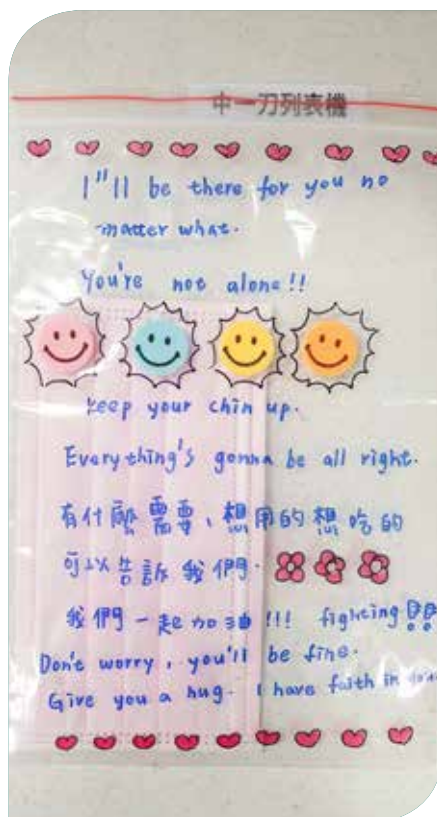 中一刀列表機
I"ll be there for you no
matter what.
You're not alone!!
keep your chin up.
Everything's gonna be all right.
有什麼需要、想用的想吃的
可以告訴我們.
我們一起加油!!! fighting
Don't worry, you'll be fine.
Give you a hug. I have faith in